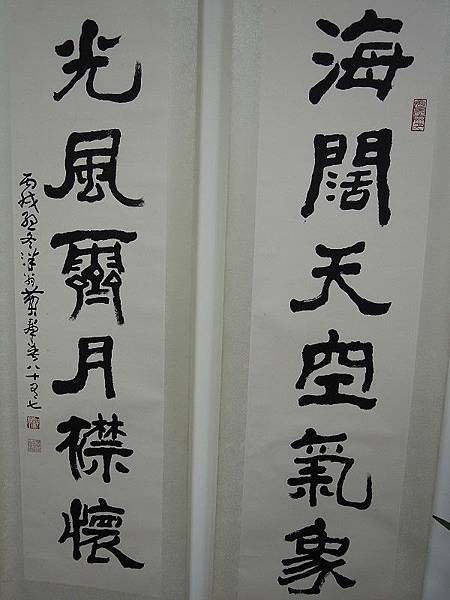 海闊天空氣象
光風霽月襟懷
丙戌孟冬 八十有七